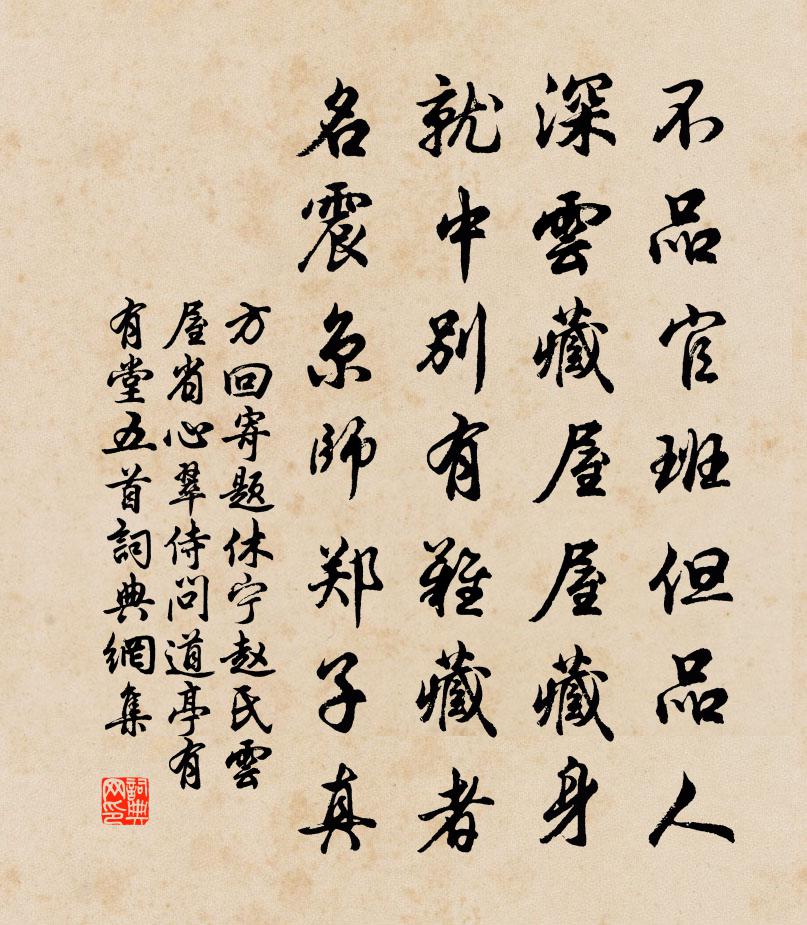 不品官班但品人
深雲藏屋屋藏身
就中別有難藏者
名震京師郑子真
方回寄題休宁赵氏雲
屋省心翠侍問道亭有
有堂五首詞典網集
詞典
网印